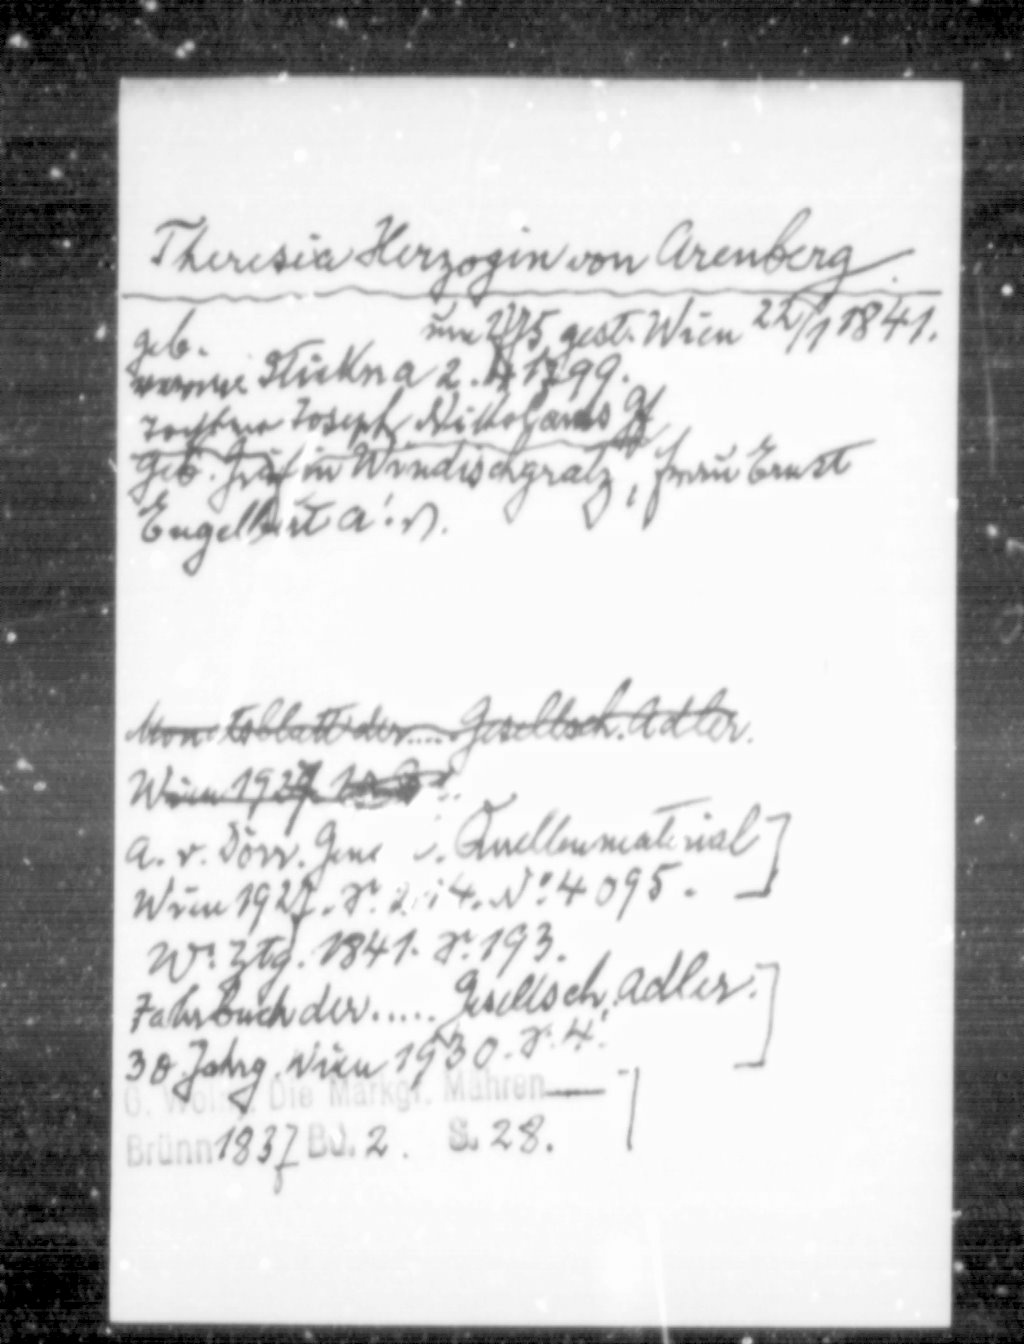 Theresia Herzogin von Arenberg.
geb. um 1775, gest. Wien 22/1 1841.
Stiekna 2. 1799.
Tochter Joseph Nikolaus Gf
geb. Gräfin Windischgrätz, Frau Ernst
Engelbert A. v.
Monatsblatt der.... Gesellsch. Adler.
Wien 1927
A. v. Dörr. Gene Quellenmaterial ]
Wien 1927. S. 4. No. 4095.
Wr. Ztg. 1841. S. 193.
Jahrbuch der..... Gesellsch. Adler. ]
30 Jahrg. Wien 1930. S. 4.
G. Wolny. Die Markgr. Mähren
Brünn 1837 Bd. 2. S. 28.